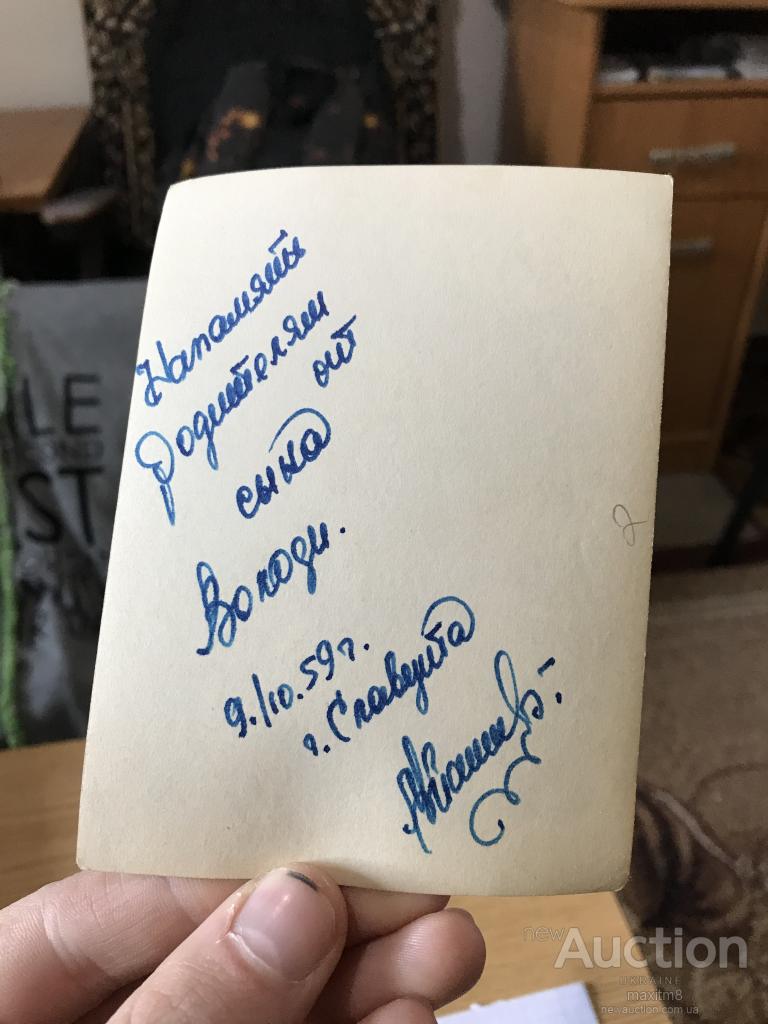 Напамять
родителям
от
сына
Володи.
9./10.59г.
г. Славута
2
LE
ST
newAuction
UKRAINE
maxitm8
newauction.com.ua